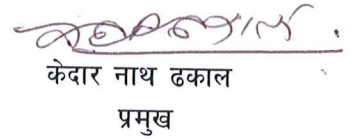 केदार नाथ ढकाल
प्रमुख